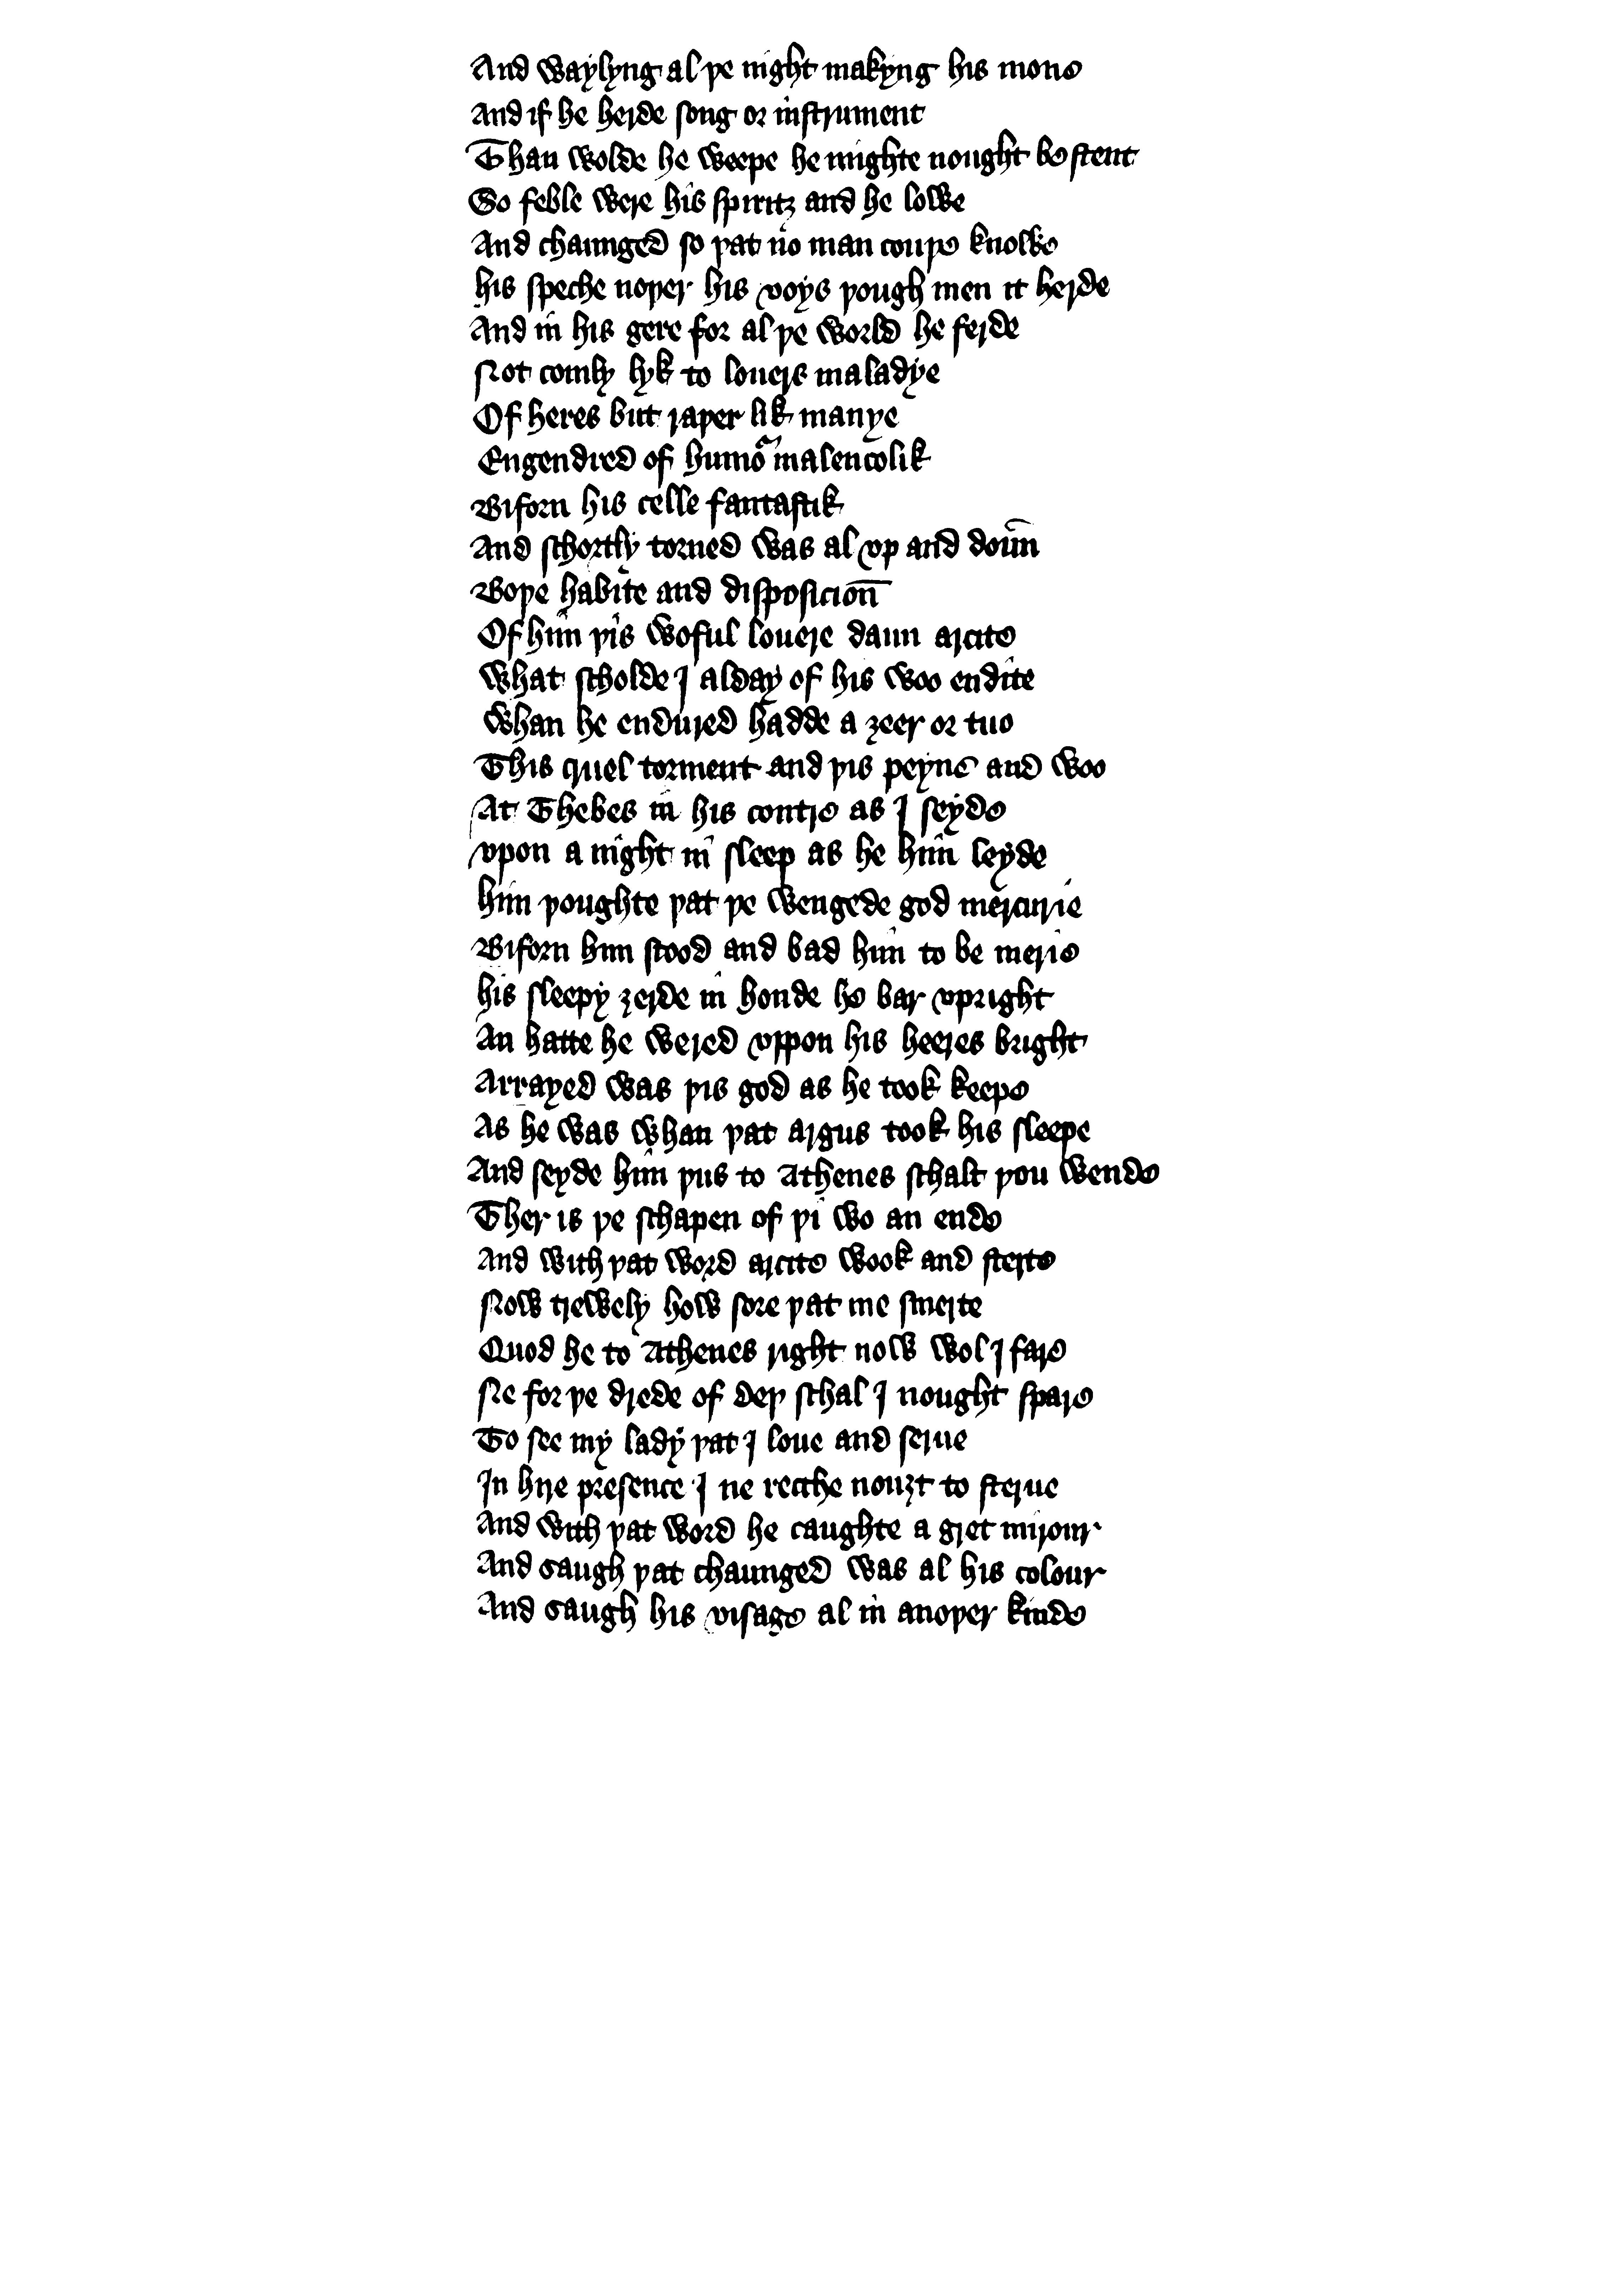 And waylyng al þe night makyng his mone
And if he herde song or instrument
Than wolde he weepe he mighte nought be stent
So feble were his spiritz and he lowe
And chaunged so þat no man couþe knowe
his speche noþer his voys þough men it herde
And in his gere for al þe world he ferde
Not comly lyk to louers maladye
Of heres but raþer lik manye
Engendred of humoᷓ malencolik
Biforn his celle fantastik
And schortly torned was al vp and doun̄
Boþe habite and disposicion̄
Of him þis woful louere daun arcite
What scholde I alday of his woo endite
Whan he endured hadde a ȝeer or tuo
This cruel torment and þis peyne and woo
At Thebes in his contre as I seyde
vpon a night in sleep as he him leyde
him þoughte þat þe wengede god mercurie
Biforn him stood and bad him to be merie
his sleepy ȝerde in honde he bar vpright
An hatte he wered vppon his heeres bright
Arrayed was þis god as he took keepe
As he was whan þat argus took his sleepe
And seyde him þus to Athenes schalt þou wende
Ther is þe schapen of þi wo an ende
And with þat word arcite wook and sterte
Now trewely how sore þat me smerte
Quod he to Athenes right now wol I fare
Ne for þe drede of deþ schal I nought spare
To see my lady þat I loue and serue
In hire presence I ne recche nouȝt to sterue
And with þat word he caughte a gret mirour
And saugh þat chaunged was al his colour
And saugh his visage al in anoþer kinde